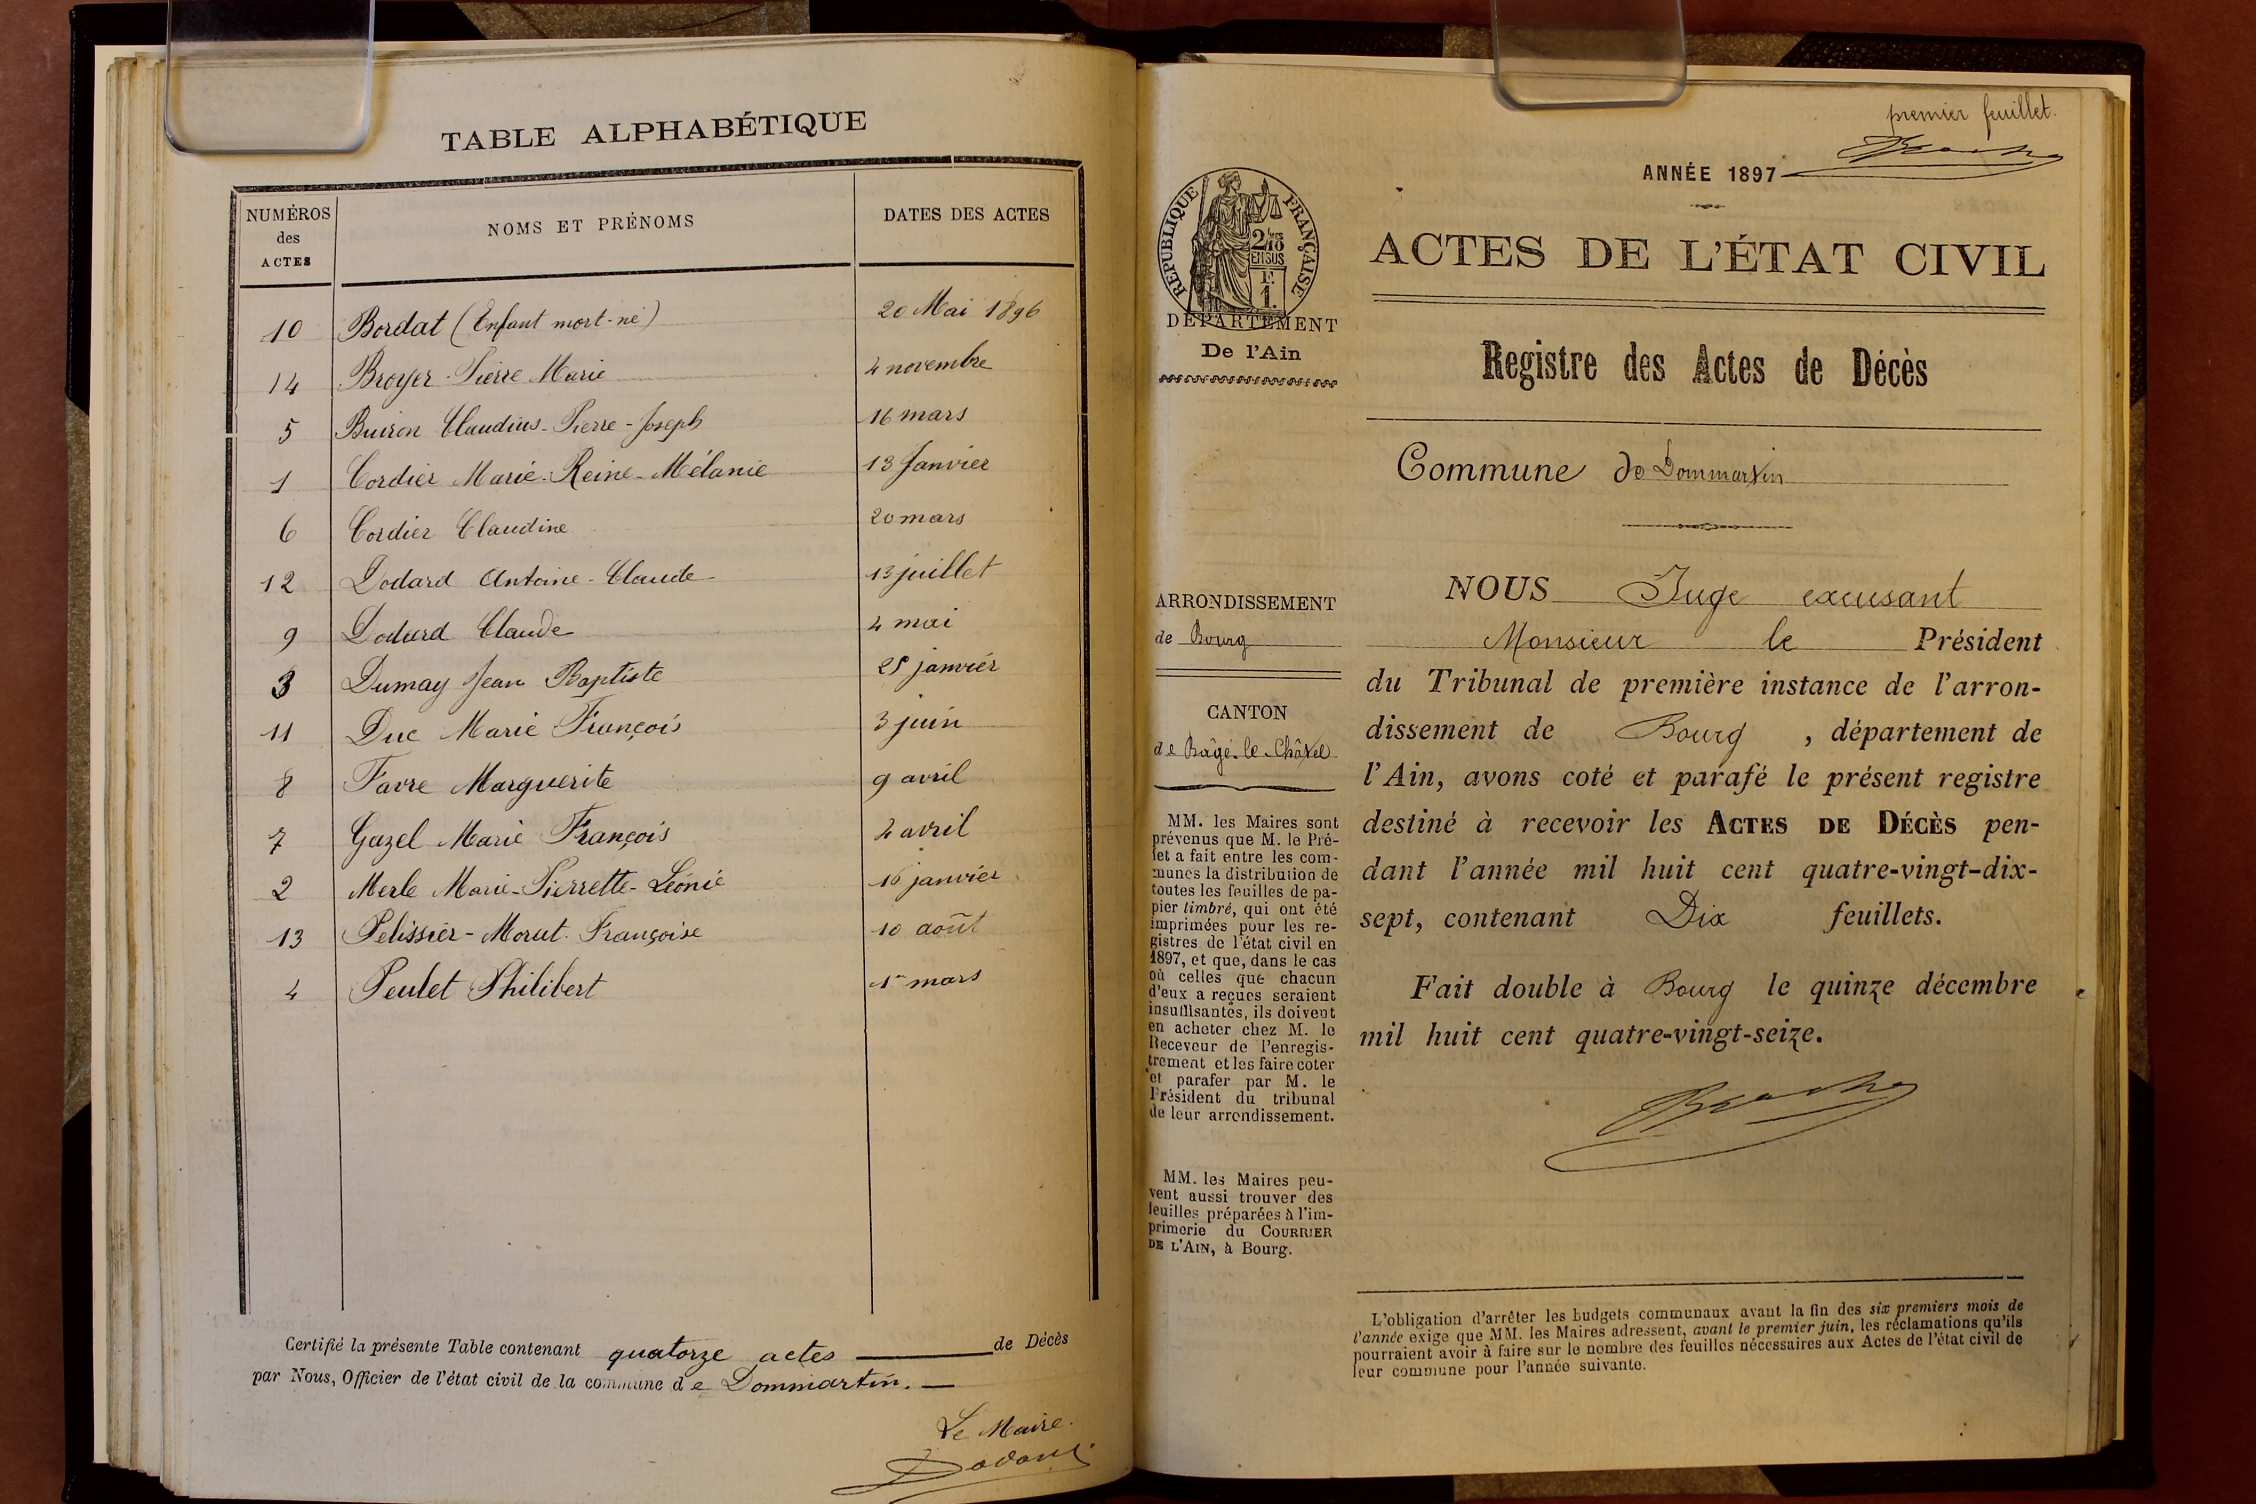 TABLE ALPHABÉTIQUE
NUMÉROS des ACTES NOMS ET PRÉNOMS DATES DES ACTES
10 Bordat (Enfant mort-né) 20 Mai 1896
14 Broyer Pierre Marie 4 novembre
5 Buiron Claudius-Pierre-Joseph 16 mars
1 Cordier Marie-Reine-Mélanie 13 Janvier
6 Cordier Claudine 20 mars
12 Dodard Antoine-Claude 13 juillet
9 Dodard Claude 4 mai
3 Dumay Jean Baptiste 25 janvier
11 Duc Marie François 3 juin
8 Favre Marguerite 9 avril
7 Gazel Marie François 4 avril
2 Merle Marie-Pierrette-Léonie 16 janvier
13 Pelissier-Morut Françoise 10 août
4 Peulet Philibert 1er mars
Certifié la présente Table contenant quatorze actes de Décès
par Nous, Officier de l'état civil de la commune de Dommartin.
Le Maire.
Dodard
premier feuillet.
ANNÉE 1897
RÉPUBLIQUE FRANÇAISE
2/10
EN SUS
F.
1.
DÉPARTEMENT
De l'Ain
ARRONDISSEMENT
de Bourg
CANTON
de Bâgé-le-Châtel
MM. les Maires sont
prévenus que M. le Pré-
fet a fait entre les com-
munes la distribution de
toutes les feuilles de pa-
pier timbré, qui ont été
imprimées pour les re-
gistres de l'état civil en
1897, et que, dans le cas
où celles que chacun
d'eux a reçues seraient
insuffisantes, ils doivent
en acheter chez M. le
Receveur de l'enregis-
trement et les faire coter
et parafer par M. le
Président du tribunal
de leur arrondissement.
MM. les Maires peu-
vent aussi trouver des
feuilles préparées à l'im-
primerie du COURRIER
DE L'AIN, à Bourg.
ACTES DE L'ÉTAT CIVIL
Registre des Actes de Décès
Commune de Dommartin
NOUS Juge excusant
Monsieur le Président
du Tribunal de première instance de l'arron-
dissement de Bourg, département de
l'Ain, avons coté et parafé le présent registre
destiné à recevoir les ACTES DE DÉCÈS pen-
dant l'année mil huit cent quatre-vingt-dix-
sept, contenant Dix feuillets.
Fait double à Bourg le quinze décembre
mil huit cent quatre-vingt-seize.
L'obligation d'arrêter les budgets communaux avant la fin des six premiers mois de
l'année exige que MM. les Maires adressent, avant le premier juin, les réclamations qu'ils
pourraient avoir à faire sur le nombre des feuilles nécessaires aux Actes de l'état civil de
leur commune pour l'année suivante.